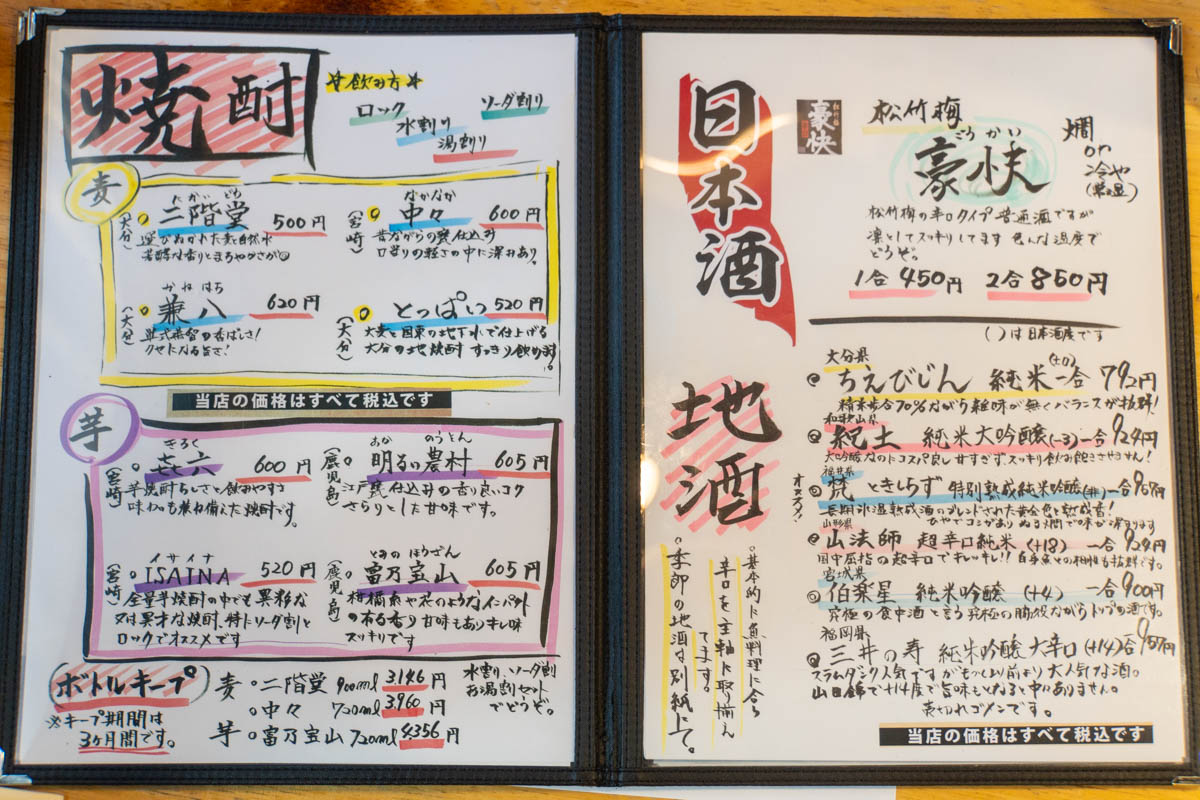 焼酎
☆飲み方☆
ロック
水割り
湯割り
ソーダ割り
麦
(大分)
にかいどう
二階堂 500円
選びぬかれた麦と自然水
(宮崎)
なかなか
中々 600円
昔ながらの甕仕込み
口当りの軽さの中に深みあり。
(大分)
かねはち
兼八 620円
単式蒸留の香ばしさ!
クセになる旨さ!
(大分)
とっぱい 520円
大麦と国東の地下水で仕上げる
大分の地焼酎 すっきり飲めます。
当店の価格はすべて税込です
芋
(宮崎)
きろく
㐂六 600円
芋焼酎らしさと飲みやすさ
味わいも兼ね備えた焼酎です。
(鹿児島)
あか のうそん
明るい農村 605円
江戸甕仕込みの香り良いコク
さらりとした甘味です。
(宮崎)
イサイナ
ISAINA 520円
全量芋焼酎の中でも異彩な
又は異才な焼酎、特にソーダ割と
ロックでオススメです
(鹿児島)
とみのほうざん
富乃宝山 605円
柑橘系や花のようなインパクト
の有る香り 甘味もありキレ味
スッキリです
ボトルキープ
※キープ期間は
3ヶ月間です。
麦。二階堂 900ml 3,146円
。中々 720ml 3,960円
芋。富乃宝山 720ml 4,356円
水割、ソーダ割
お湯割セット
でどうぞ。
日本酒
松竹梅
豪快
松竹梅
ごうかい
豪快
燗
ひや
冷や
(常温)
松竹梅の辛口タイプ 普通酒ですが
凛としてスッキリしてます 色んな温度で
どうぞ。
1合450円 2合850円
( )は日本酒度です
地酒
。基本的に魚料理に合う
辛口を主軸に取り揃え
てます。
。季節の地酒は別紙にて。
大分県
ちえびじん 純米 (±0) 一合 792円
精米歩合70%ながら雑味が無くバランスが抜群!
和歌山県
紀土 純米大吟醸 (-3) 一合 924円
大吟醸なのにコスパ良し 甘すぎず、スッキリ飲み飽きさせません!
オススメ!
福井県
梵 ときしらず 特別熟成純米吟醸 一合 957円
長期氷温熟成酒のブレンドされた黄金色と熟成香!
ひやでコシがあり ぬる燗で味が深まります
山形県
山法師 超辛口純米 (+18) 一合 924円
国中屈指の超辛口でキレッキレ!! 白身魚との相性も抜群です。
宮城県
伯楽星 純米吟醸 (+4) 一合 900円
究極の食中酒と言う究極の脇役ながらトップの酒です。
福岡県
三井の寿 純米吟醸 大辛口 (+14) 一合 957円
スラムダンク人気ですが もっと以前より大人気な酒。
山田錦で+14度で旨味もとなると中々ありません。
売切れゴメンです。
当店の価格はすべて税込です